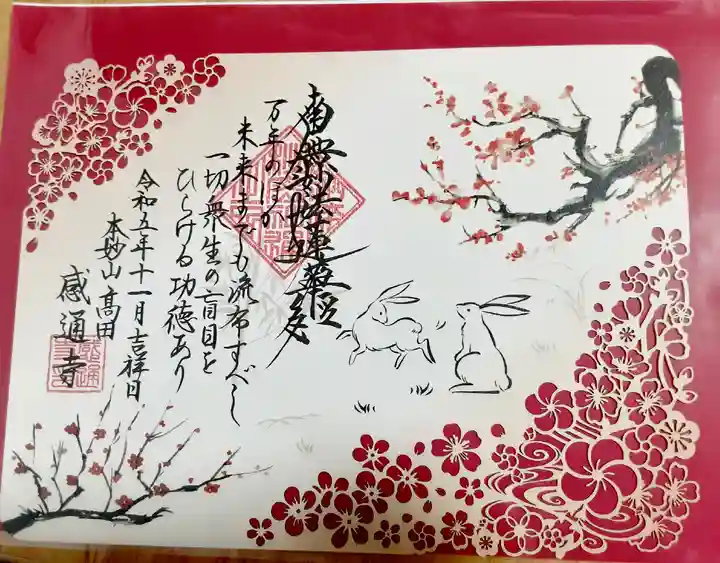 南無妙法蓮華経
万年のほか
未来までも流布すべし
一切衆生の盲目を
ひらける功徳あり
令和五年十一月吉祥日
本妙山髙田
感通寺